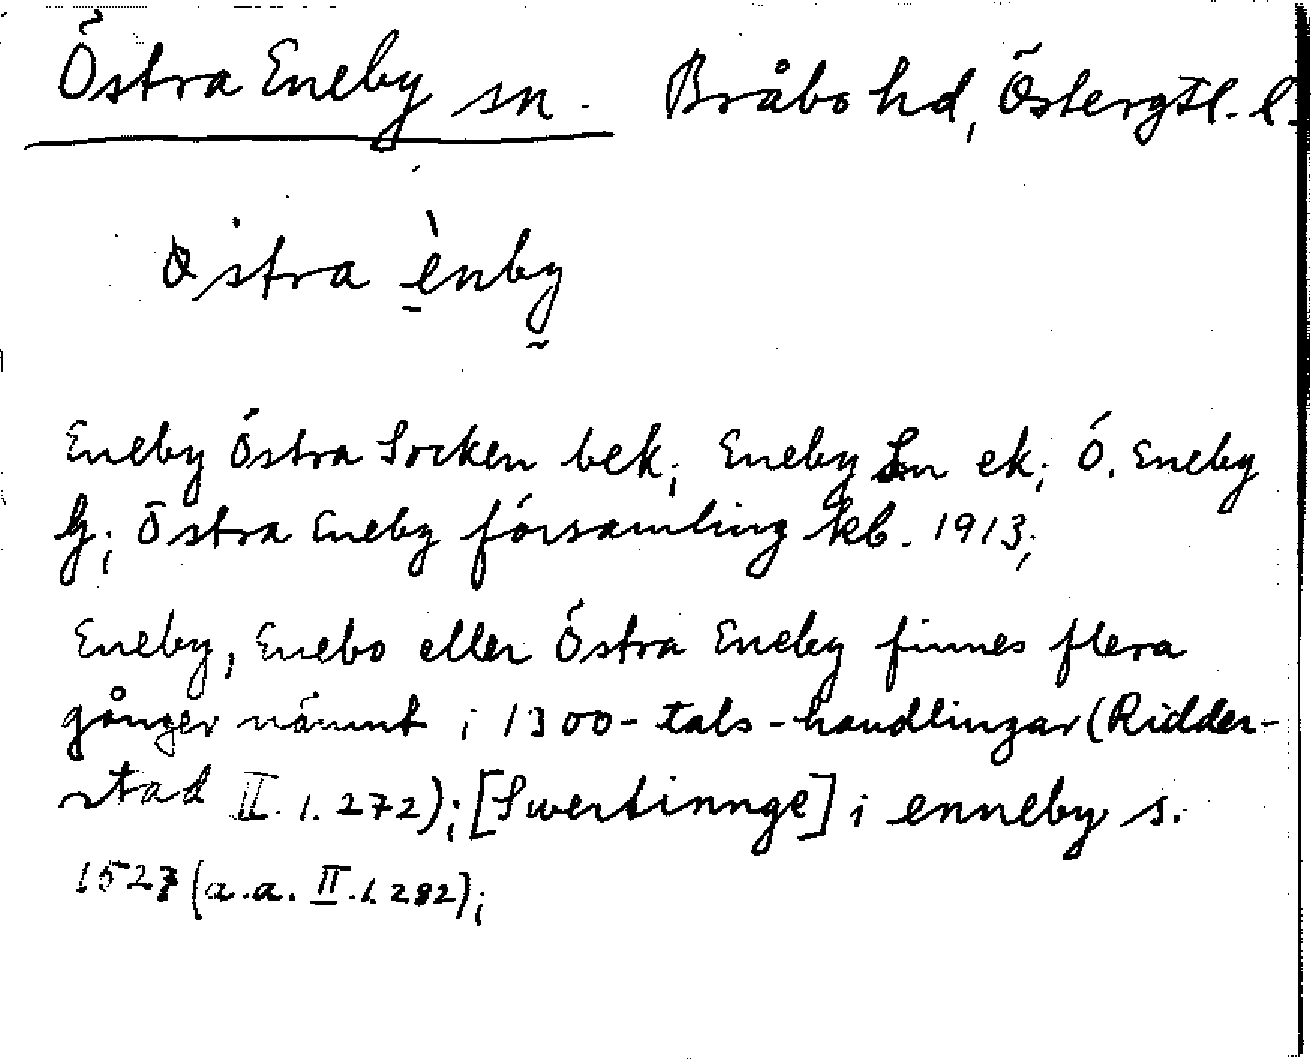 Östra Eneby sn. Bråbo hd, Östergtl. l.
Östra ènby
Eneby Östra Socken bek; Eneby Sn ek; Ö. Eneby
G; Östra Eneby församling kb. 1913;
Eneby, Enebo eller Östra Eneby finnes flera
gånger nämnt i 1300-tals-handlingar (Ridder-
stad II. 1. 272); [Swertinnge] i enneby s.
1527 (a.a. II. 1. 282);